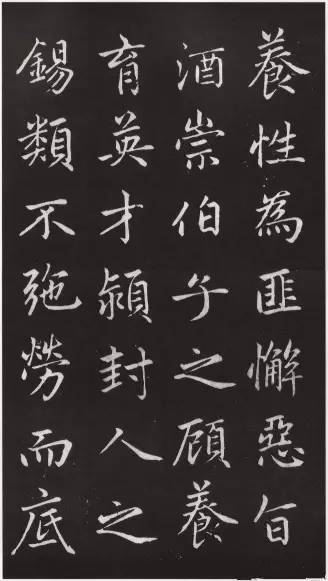 養性為匪懈惡旨
酒崇伯子之顧養
育英才潁封人之
錫類不弛勞而底